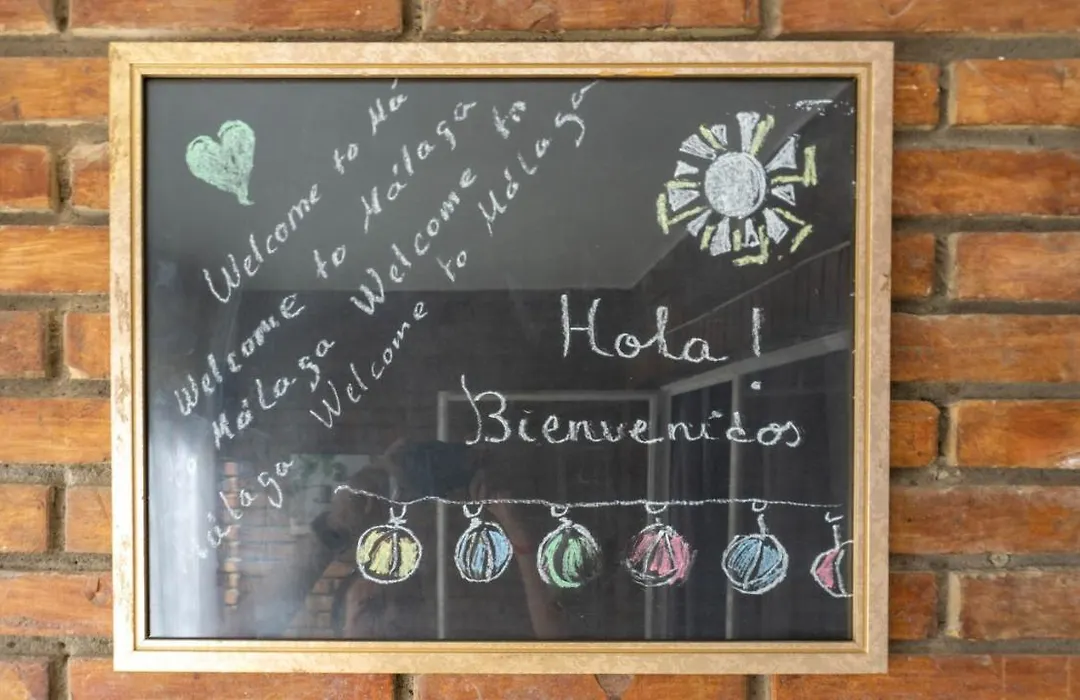 Welcome to Má
Welcome to Málaga
Málaga Welcome to
álaga Welcome to Málaga
Hola!
Bienvenidos